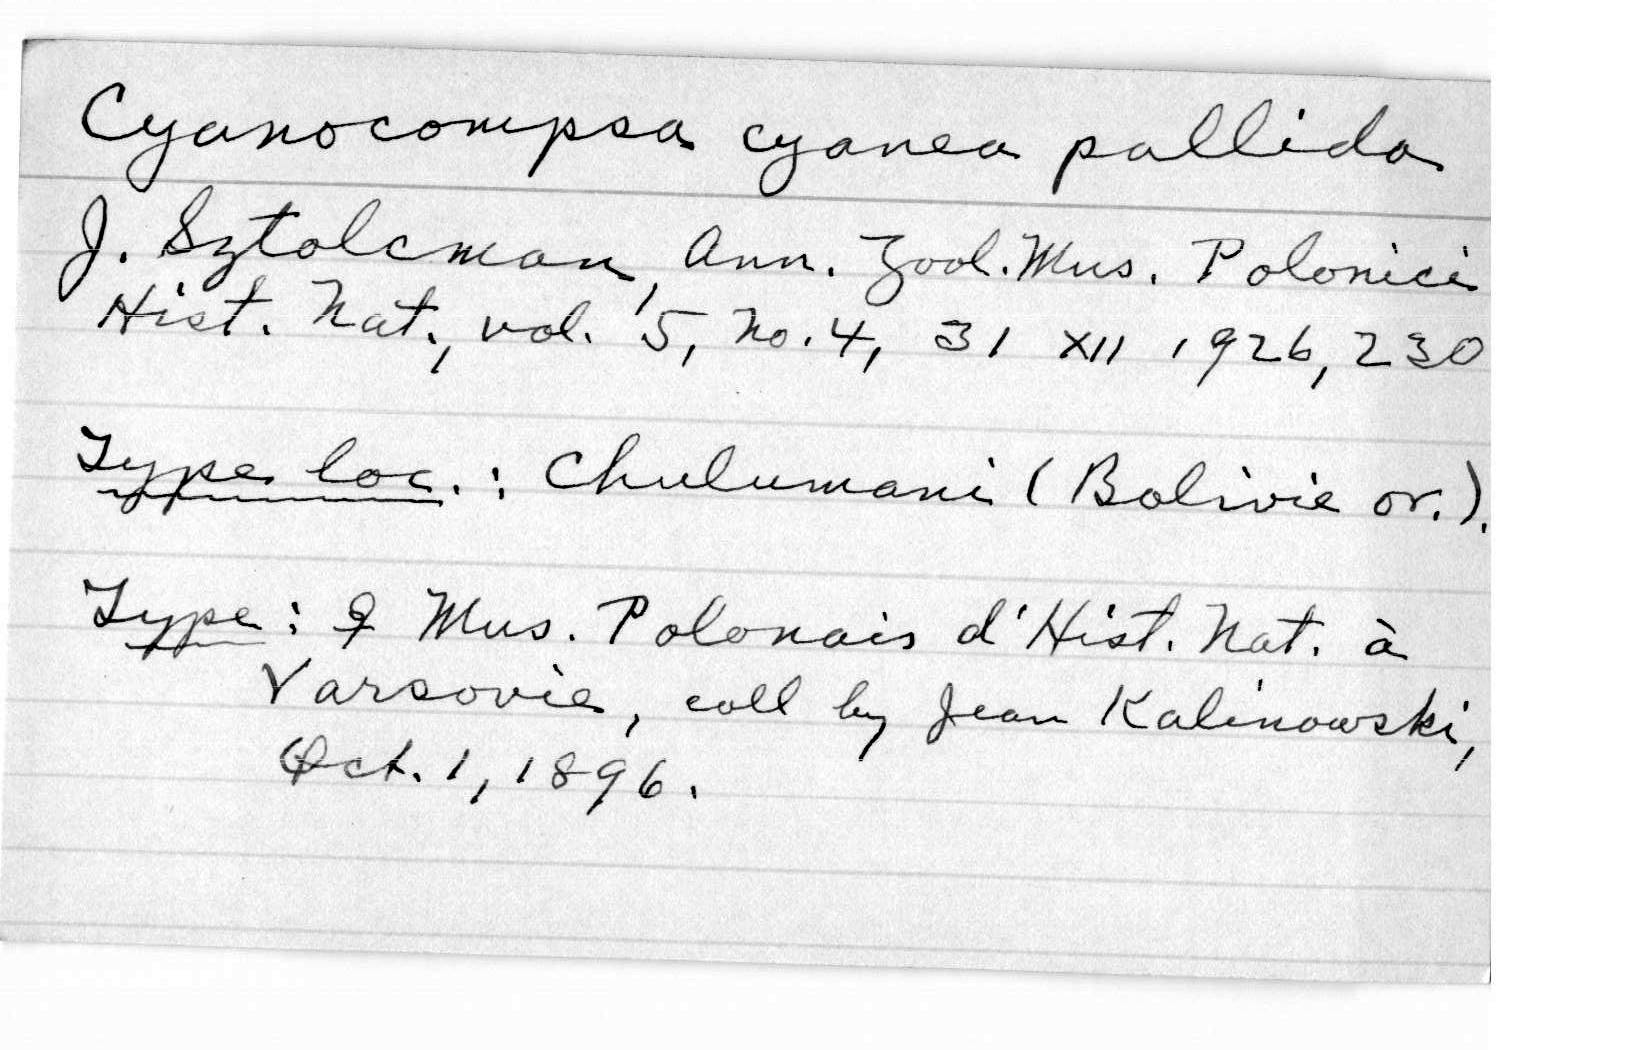 Cyanocompsa cyanea pallida
J. Sztolcman, Ann. Zool. Mus. Polonici
Hist. Nat., vol. 5, no. 4, 31 XII 1926, 230
Type loc.: Chulumani (Bolivie or.).
Type: ♀ Mus. Polonais d'Hist. Nat. à
Varsovie, coll by Jean Kalinowski,
Oct. 1, 1896.